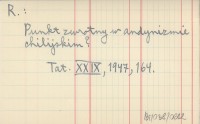 R.:
Punkt zwrotny w andynizmie
chilijskim?
Tat. XXIX, 1947, 164.